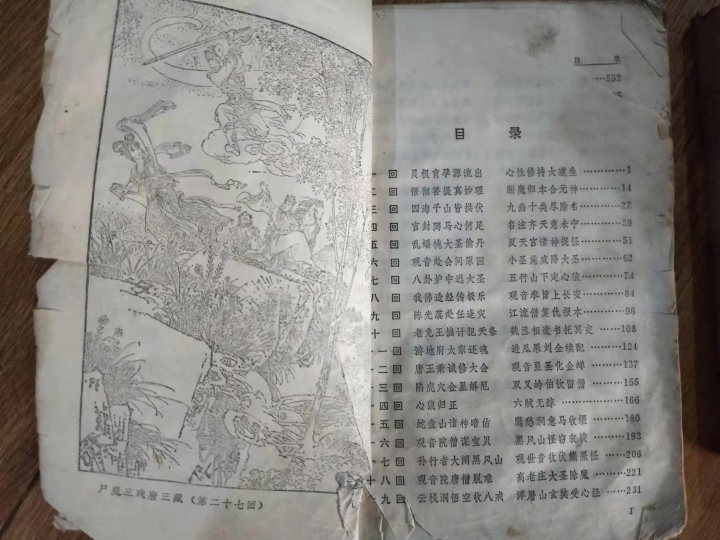 尸魔三戏唐三藏（第二十七回）
目 录
…552
目 录
一 回 灵根育孕源流出 心性修持大道生 …………1
二 回 悟彻菩提真妙理 断魔归本合元神 …………14
三 回 四海千山皆拱伏 九幽十类尽除名 …………27
四 回 官封弼马心何足 名注齐天意未宁 …………39
五 回 乱蟠桃大圣偷丹 反天宫诸神捉怪 …………51
六 回 观音赴会问原因 小圣施威降大圣 …………62
七 回 八卦炉中逃大圣 五行山下定心猿 …………74
八 回 我佛造经传极乐 观音奉旨上长安 …………84
九 回 陈光蕊赴任逢灾 江流僧复仇报本 …………96
十 回 老龙王拙计犯天条 魏丞相遗书托冥吏 ………108
十一回 游地府太宗还魂 进瓜果刘全续配 …………124
十二回 唐王秉诚修大会 观音显圣化金蝉 …………137
十三回 陷虎穴金星解厄 双叉岭伯钦留僧 …………155
十四回 心猿归正 六贼无踪 …………166
十五回 蛇盘山诸神暗佑 鹰愁涧意马收缰 …………180
十六回 观音院僧谋宝贝 黑风山怪窃袈裟 …………193
十七回 孙行者大闹黑风山 观世音收伏熊罴怪 ………206
十八回 观音院唐僧脱难 高老庄大圣除魔 …………221
十九回 云栈洞悟空收八戒 浮屠山玄奘受心经 ………231
1